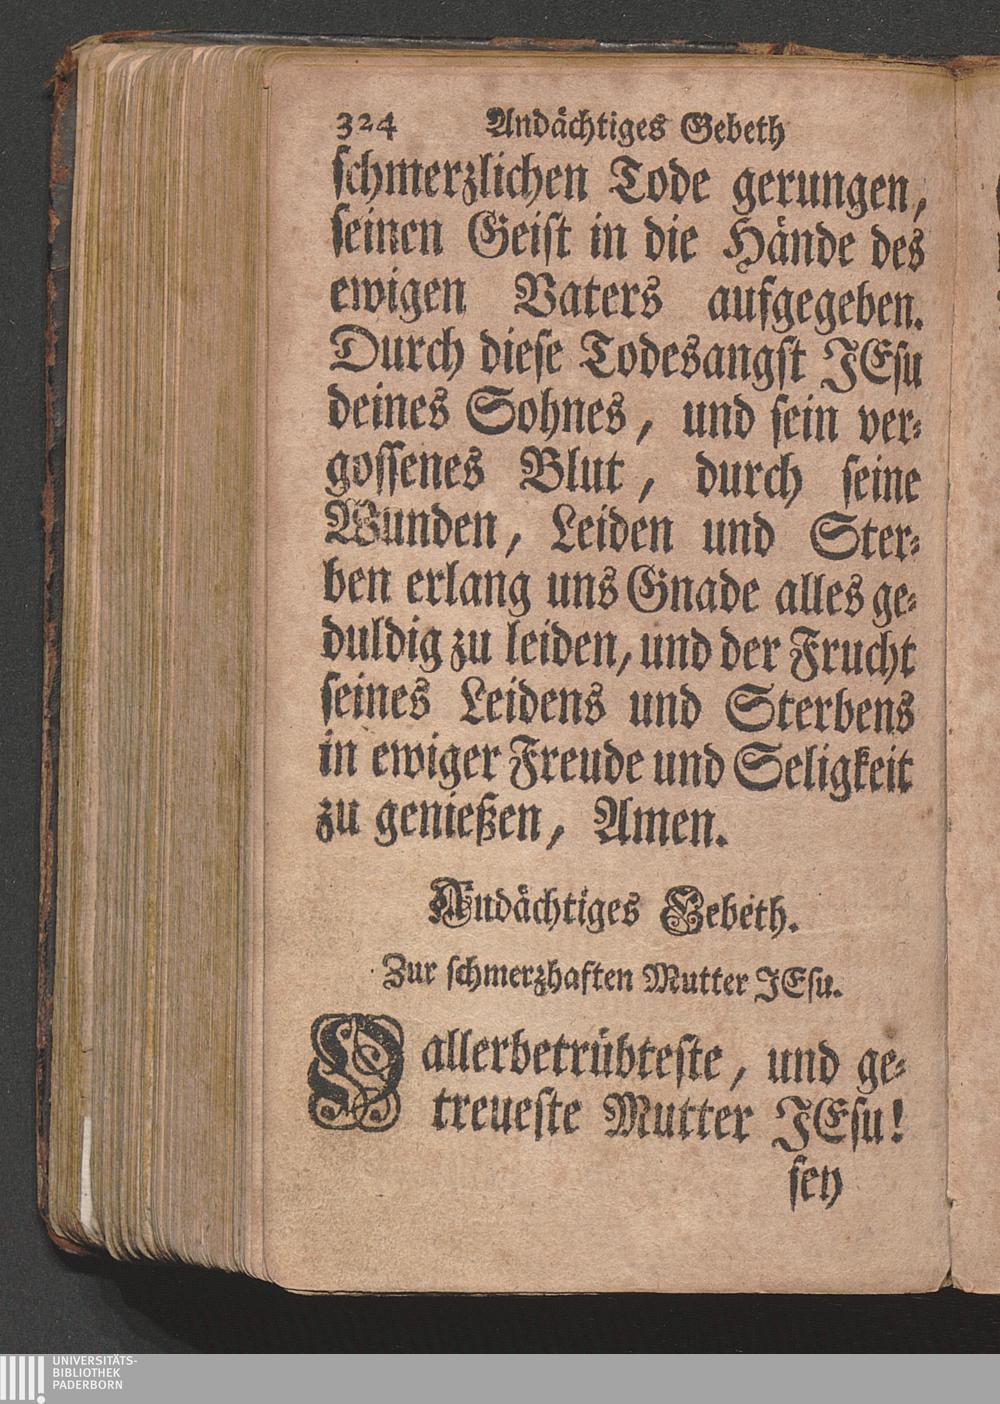 324 Andächtiges Gebeth
schmerzlichen Tode gerungen,
seinen Geist in die Hände des
ewigen Vaters aufgegeben.
Durch diese Todesangst JEsu
deines Sohnes, und sein ver-
gossenes Blut, durch seine
Wunden, Leiden und Ster-
ben erlang uns Gnade alles ge-
duldig zu leiden, und der Frucht
seines Leidens und Sterbens
in ewiger Freude und Seligkeit
zu genießen, Amen.
Andächtiges Gebeth.
Zur schmerzhaften Mutter JEsu.
O allerbetrübteste, und ge-
treueste Mutter JEsu!
sey
UNIVERSITÄTS-
BIBLIOTHEK
PADERBORN